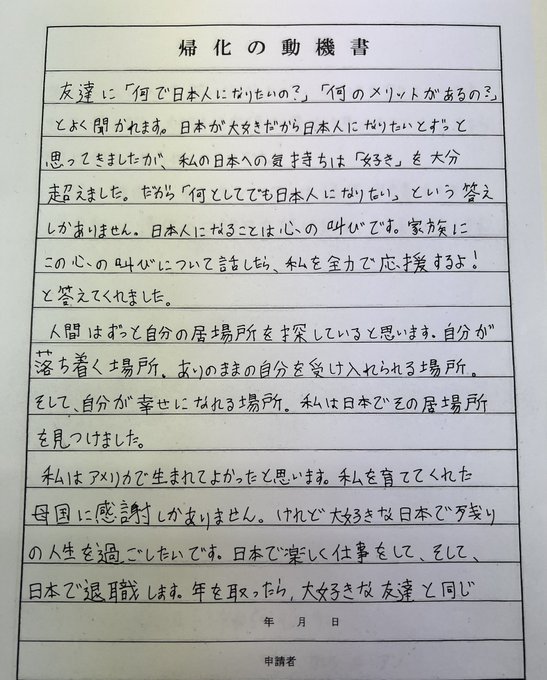 帰化の動機書
友達に「何で日本人になりたいの?」「何のメリットがあるの?」
とよく聞かれます。日本が大好きだから日本人になりたいとずっと
思ってきましたが、私の日本への気持ちは「好き」を大分
超えました。だから「何としてでも日本人になりたい」という答え
しかありません。日本人になることは心の叫びです。家族に
この心の叫びについて話したら、私を全力で応援するよ!
と答えてくれました。
人間はずっと自分の居場所を探していると思います。自分が
落ち着く場所。ありのままの自分を受け入れられる場所。
そして、自分が幸せになれる場所。私は日本でその居場所
を見つけました。
私はアメリカで生まれてよかったと思います。私を育ててくれた
母国に感謝しかありません。けれど大好きな日本で残り
の人生を過ごしたいです。日本で楽しく仕事をして、そして、
日本で退職します。年を取ったら、大好きな友達と同じ
年 月 日
申請者